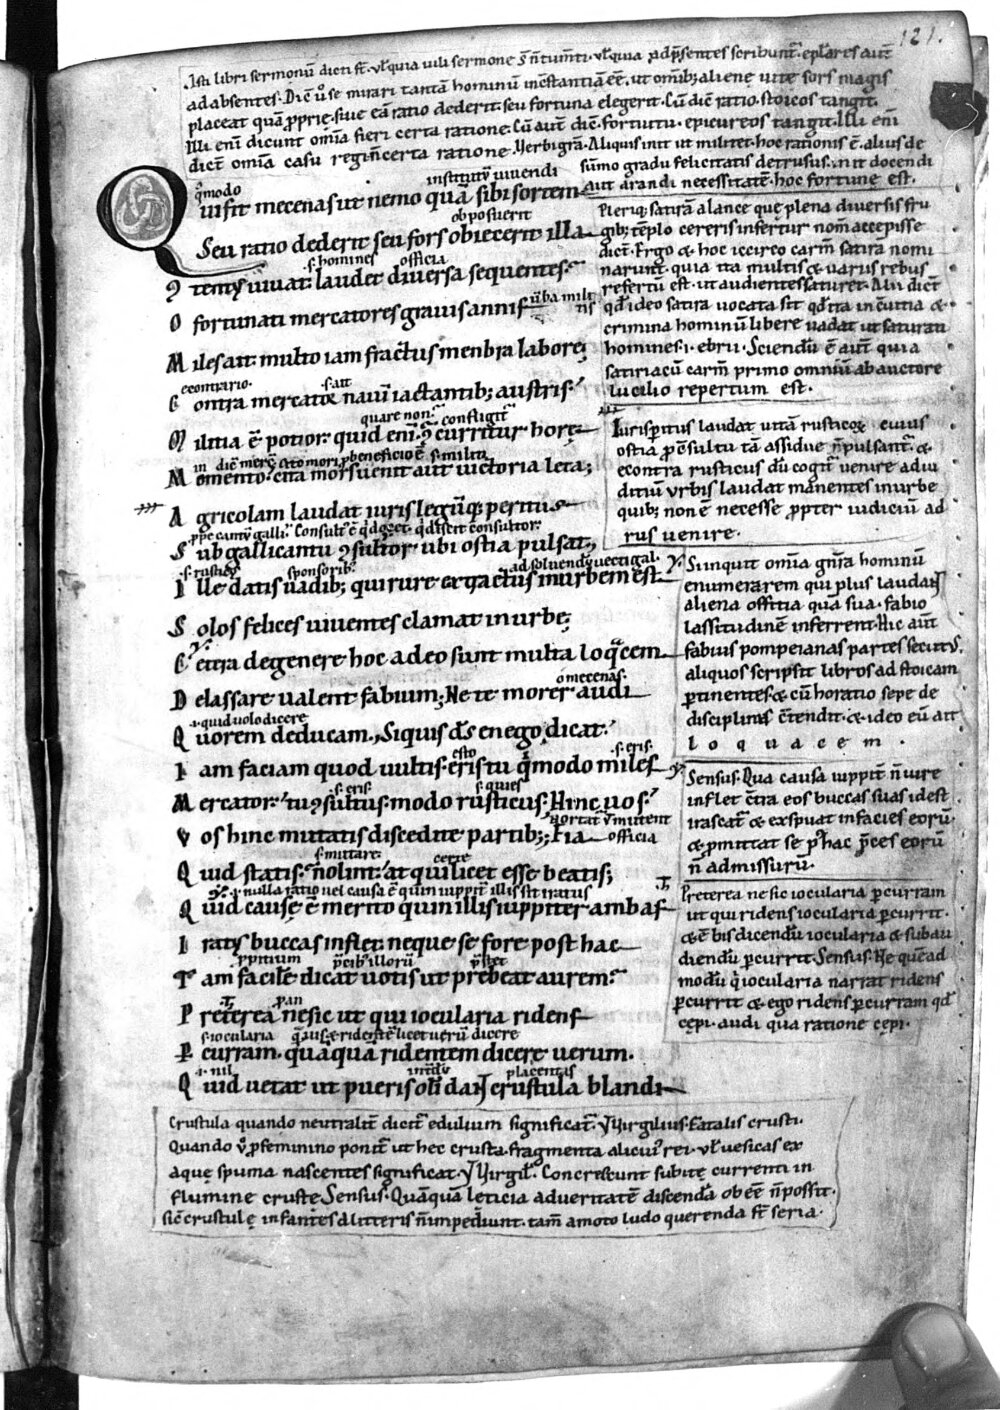 121.
Isti libri sermonū dicti st̄. vl̄ quia uili sermone s̄
adabsentes. Dic̄ ū se mirari tantā hominum incstantiā eē. ut omībꝫ alienę uitę sors magis
placeat quā ꝓprię. siue eā ratio dederit. seu fortuna elegerit. Cū dic̄ ratio. stoicos tangit.
Illi enī dicunt omīa fieri certa ratione. Cū aut̄ dic̄ fortuitu. epicureos tangit. Illi enī
dict̄ omīa casu regi incerta ratione. Verbi grā. Aliquis init ut militet. hoc rationis ē. alius de
sūmo gradu felicitatis detrusus. init docendi
aut arandi necessitatē. hoc fortunę est.
q̄modo
institutꝰ uiuendi
Quifit mecenas ut nemo quā sibi sortem
obposuerit
Seu ratio dederit seu fors obiecerit illa
s. homines officia
Ↄtentꝰ uiuat. laudet diuersa sequentes.
O fortunati mercatores grauis annis
M iles ait. multo iam fractus menbra labore;
econtrario. s. ait
C ontra mercator nauī iactantibꝫ austris.
quare non. confligit̄
M ilitia ē potior. quid enī. ↄcurritur horę
M omento. cita mors uenit aut uictoria leta;
A gricolam laudat iuris legūqꝫ peritus
S ub gallicantu ↄsultor. ubi ostia pulsat,
s. rusticꝰ sponsoribꝰ
I lle datis uadibꝫ qui rure extractus inurbem est
S olos felices uiuentes clamat inurbe;
C etera degenere hoc adeo sunt multa loq̄cem
o mecenas.
D elassare ualent fabium; Ne te morer audi
.i. quid uolo dicere
Q uorem deducam. Siquis ds̄ en ego dicat.
s. eris.
I am faciam quod uultis. eris tu q̄modo miles
s. eris. s. q̄ es
M ercator. tu ↄsultus. modo rusticus. Hinc uos.
V os hinc mutatis discedite partibꝫ; Eia
officia
certe
Q uid statis. nōlint. at qui licet esse beatis;
.i. nulla ratio uel causa ē quin iuppit̄ illis sit iratus
Q uid causę ē merito quin illis iuppiter ambas
I ratꝰ buccas inflet. neque se fore post hac
T am facilē dicat uotis ut prebeat aurem.
P retereā nesic ut qui iocularia ridens
P ercurram. quāquā ridentem dicere uerum.
.i. nil placentas
Q uid uetat ut pueris olī dant crustula blandi
Pleriqꝫ satirā a lance quę plena diuersis fru
gibꝫ tēplo cereris infertur nom̄ accepisse
dict̄. Ergo & hoc iccirco carm̄ satira nomi
narunt. quia ita multis & uariis rebus
refertū est. ut audientes saturet. Alii dict̄
qd̄ ideo satira uocata sit qd̄ ita inc̄uitia &
crimina hominū libere uadat ut saturati
homines .i. ebrii. Sciendū ē aut̄ quia
satiriacū carm̄ primo omniū ab auctore
lucilio repertum est.
Iurisꝑitus laudat uitā rusticoꝝ cuius
ostia ꝓ csultu tā assidue n̄ pulsant̄. &
econtra rusticus dū cogit̄ uenire adiu
ditiū urbis laudat manentes inurbe
quibꝫ non ē necesse ꝓpter iudiciū ad
rus uenire.
Sunquit omīa gn̄ra hominū
enumerarem qui plus laudant
aliena offitia quā sua. fabio
lassitudinē inferrent. Hic aut̄
fabius pompeianas partes secutꝰ,
aliquos scripsit libros ad stoicam
ꝑtinentes. & cū horatio sepe de
disciplinis c̄tendit. & ideo eū ait
loquacem.
Sensus. Qua causa iuppit̄ n̄ iure
inflet c̄tra eos buccas suas idest
irascat̄ & exspuat infacies eorū.
& ꝓmittat se p̄ hac p̄ces eorū
n̄ admissurū.
Preterea ne sic iocularia ꝑcurram
ut qui ridens iocularia ꝑcurrit.
& ē bis dicendū iocularia & subau
diendū ꝑcurrit. Sensus. Ne quēad
modū q̄ iocularia narrat ridens
ꝑcurrit & ego ridens ꝑcurram qd̄
cępi. audi qua ratione cępi.
Crustula quando neutralit̄ dicit̄ edulium significat. Virgilius. Fatalis crusti.
Quando ū ꝓ feminino ponit̄ ut hec crusta. fragmenta alicuiꝰ rei. vl̄ uesicas ex
aquę spuma nascentes significat. Virgil̄. Concrescunt subitę currenti in
flumine crustę. Sensus. Quāquā leticia a dueritatē discendā obeē n̄ possit.
sic crustulę infantes a litteris n̄ impediunt. tam̄ amoto ludo querenda st̄ seria.